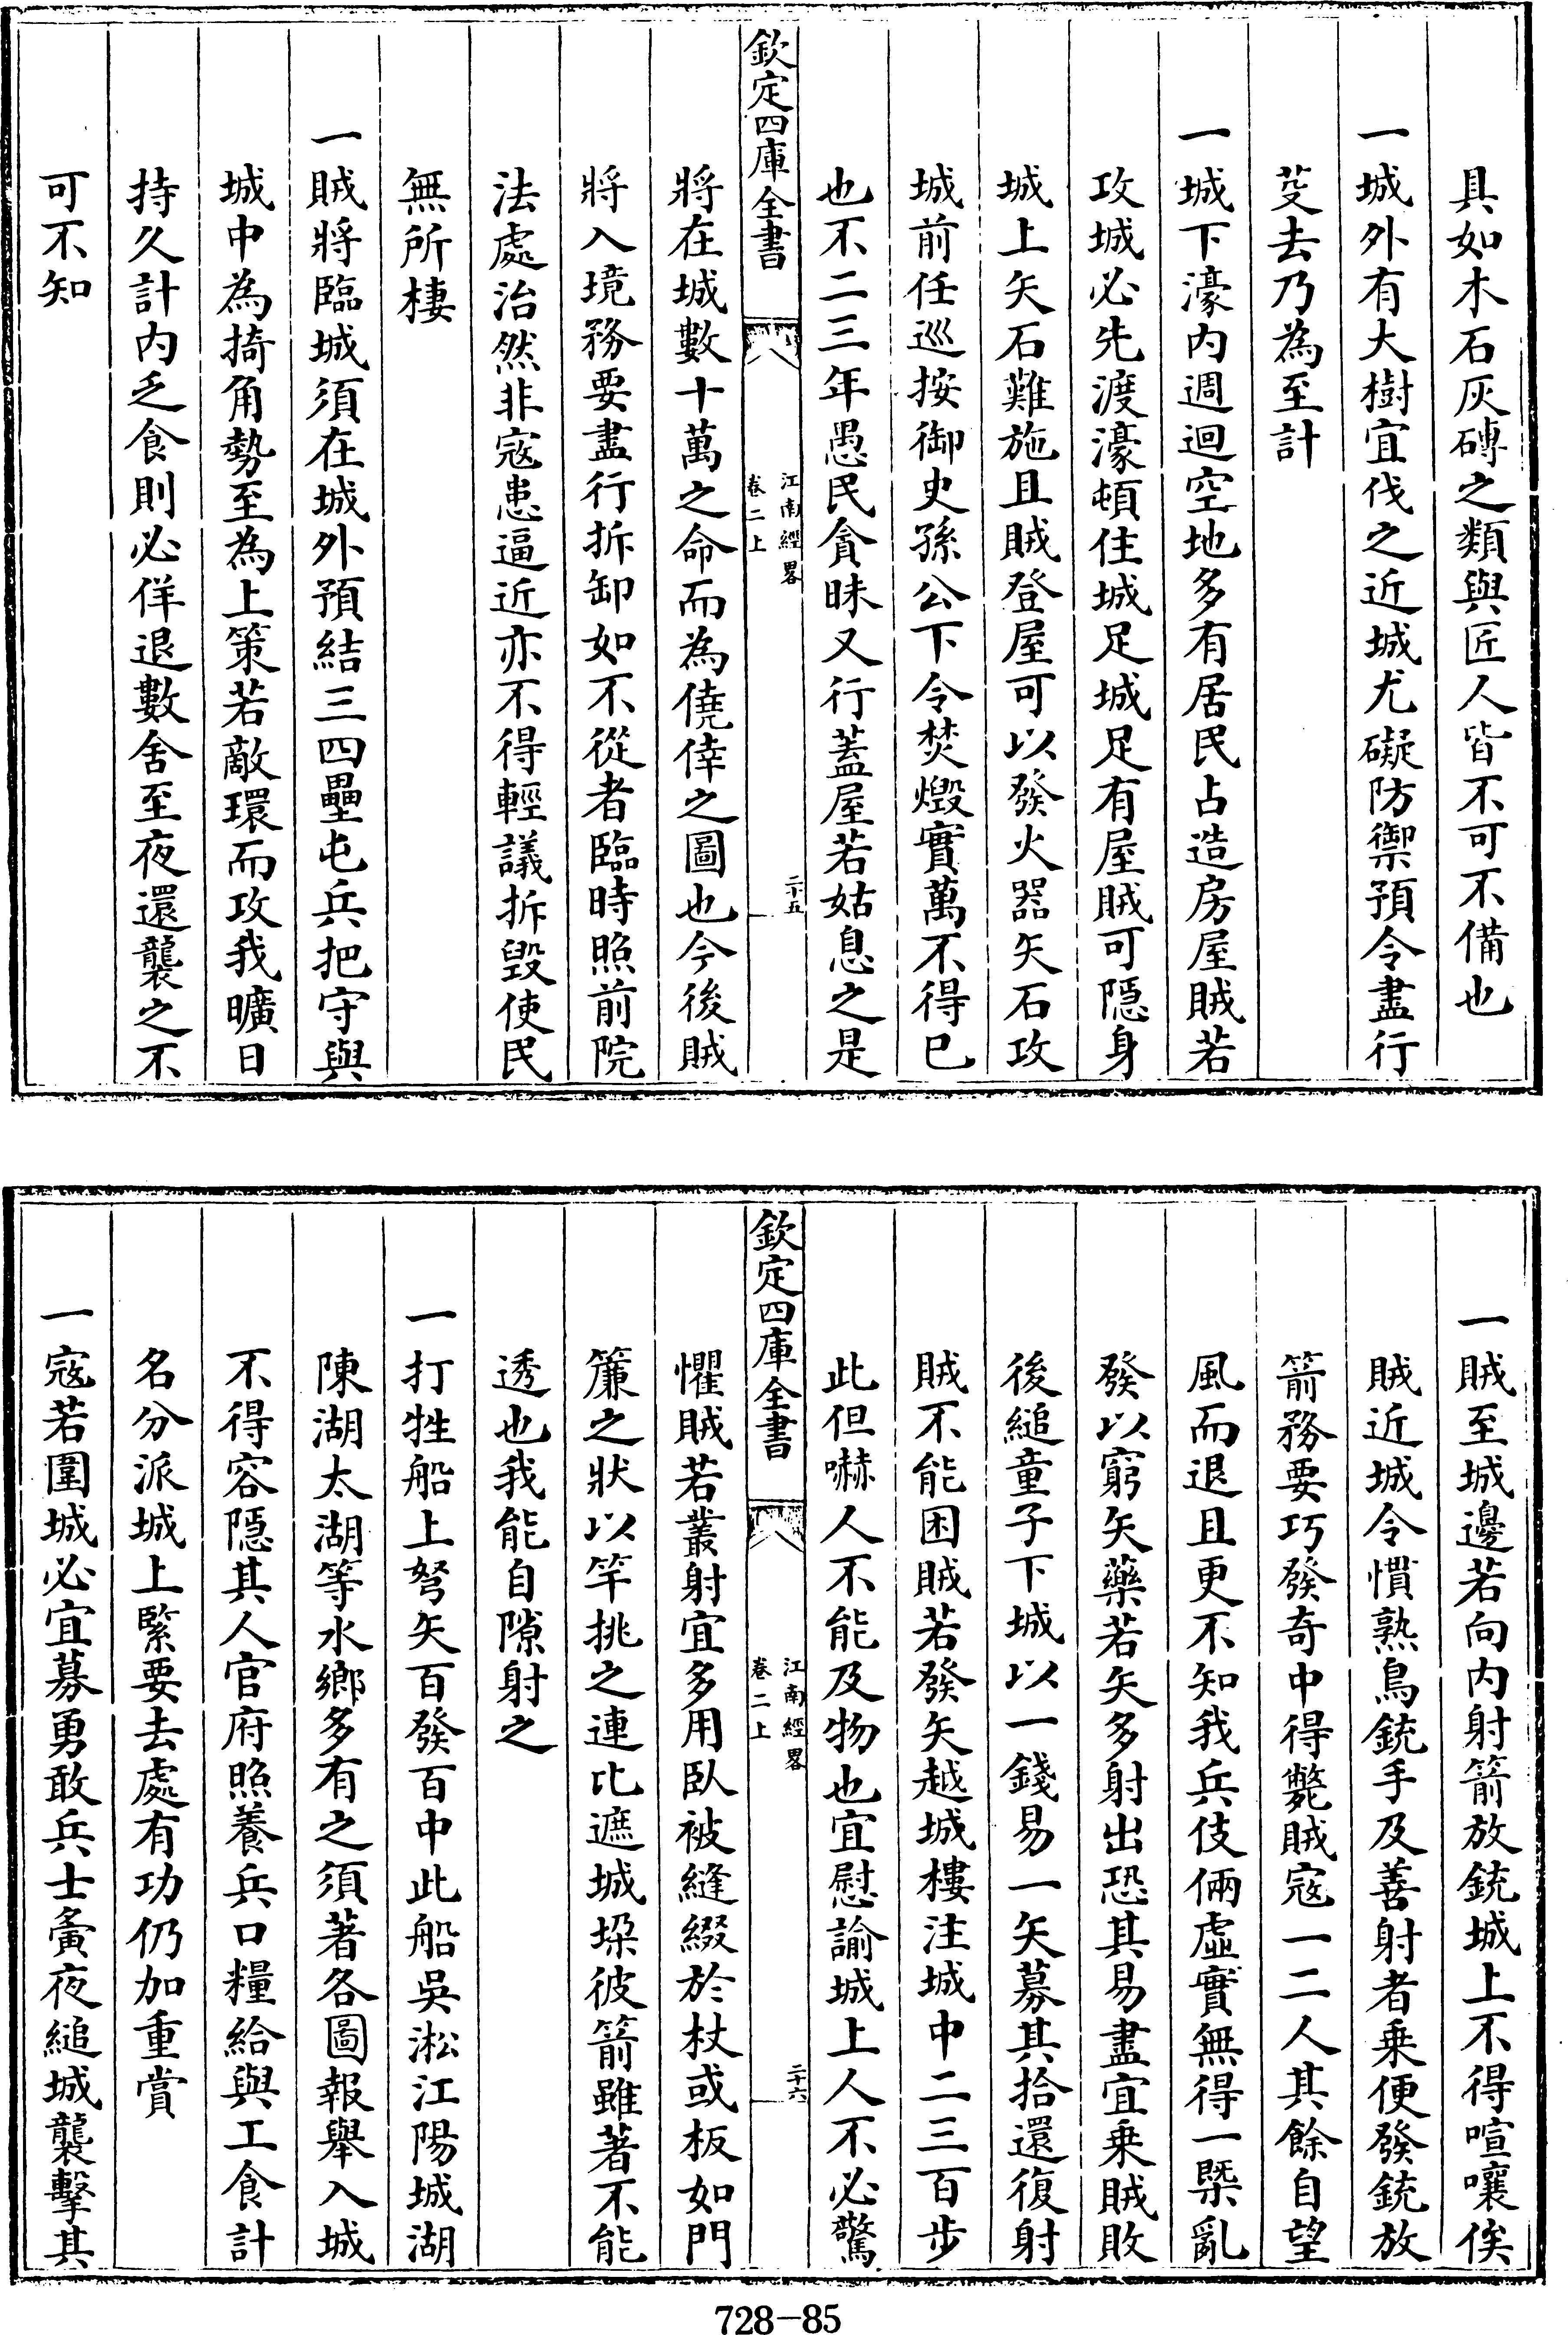 具如木石灰磚之類與匠人皆不可不備也
一城外有大樹宜伐之近城尤礙防禦預令盡行
芟去乃為至計
一城下濠内週迴空地多有居民占造房屋賊若
攻城必先渡濠頓住城足城足有屋賊可隱身
城上矢石難施且賊登屋可以發火器矢石攻
城前任巡按御史孫公下令焚燬實萬不得已
也不二三年愚民貪昧又行蓋屋若姑息之是
欽定四庫全書
江南經畧
卷二上
二十五
將在城數十萬之命而為僥倖之圖也今後賊
將入境務要盡行拆卸如不從者臨時照前院
法處治然非寇患逼近亦不得輕議拆毀使民
無所棲
一賊將臨城須在城外預結三四壘屯兵把守與
城中為掎角勢至為上策若敵環而攻我曠日
持久計内乏食則必佯退數舍至夜還襲之不
可不知
一賊至城邊若向内射箭放銃城上不得喧嚷俟
賊近城令慣熟鳥銃手及善射者乗便發銃放
箭務要巧發奇中得斃賊寇一二人其餘自望
風而退且更不知我兵伎倆虛實無得一槩亂
發以窮矢藥若矢多射出恐其易盡宜乗賊敗
後縋童子下城以一錢易一矢募其拾還復射
賊不能困賊若發矢越城樓注城中二三百步
此但嚇人不能及物也宜慰諭城上人不必驚
欽定四庫全書
江南經畧
卷二上
二十六
懼賊若叢射宜多用臥被縫綴於杖或板如門
簾之狀以竿挑之連比遮城垜彼箭雖著不能
透也我能自隙射之
一打牲船上弩矢百發百中此船吳淞江陽城湖
陳湖太湖等水鄉多有之須著各圖報舉入城
不得容隱其人官府照養兵口糧給與工食計
名分派城上緊要去處有功仍加重賞
一寇若圍城必宜募勇敢兵士夤夜縋城襲擊其
728-85